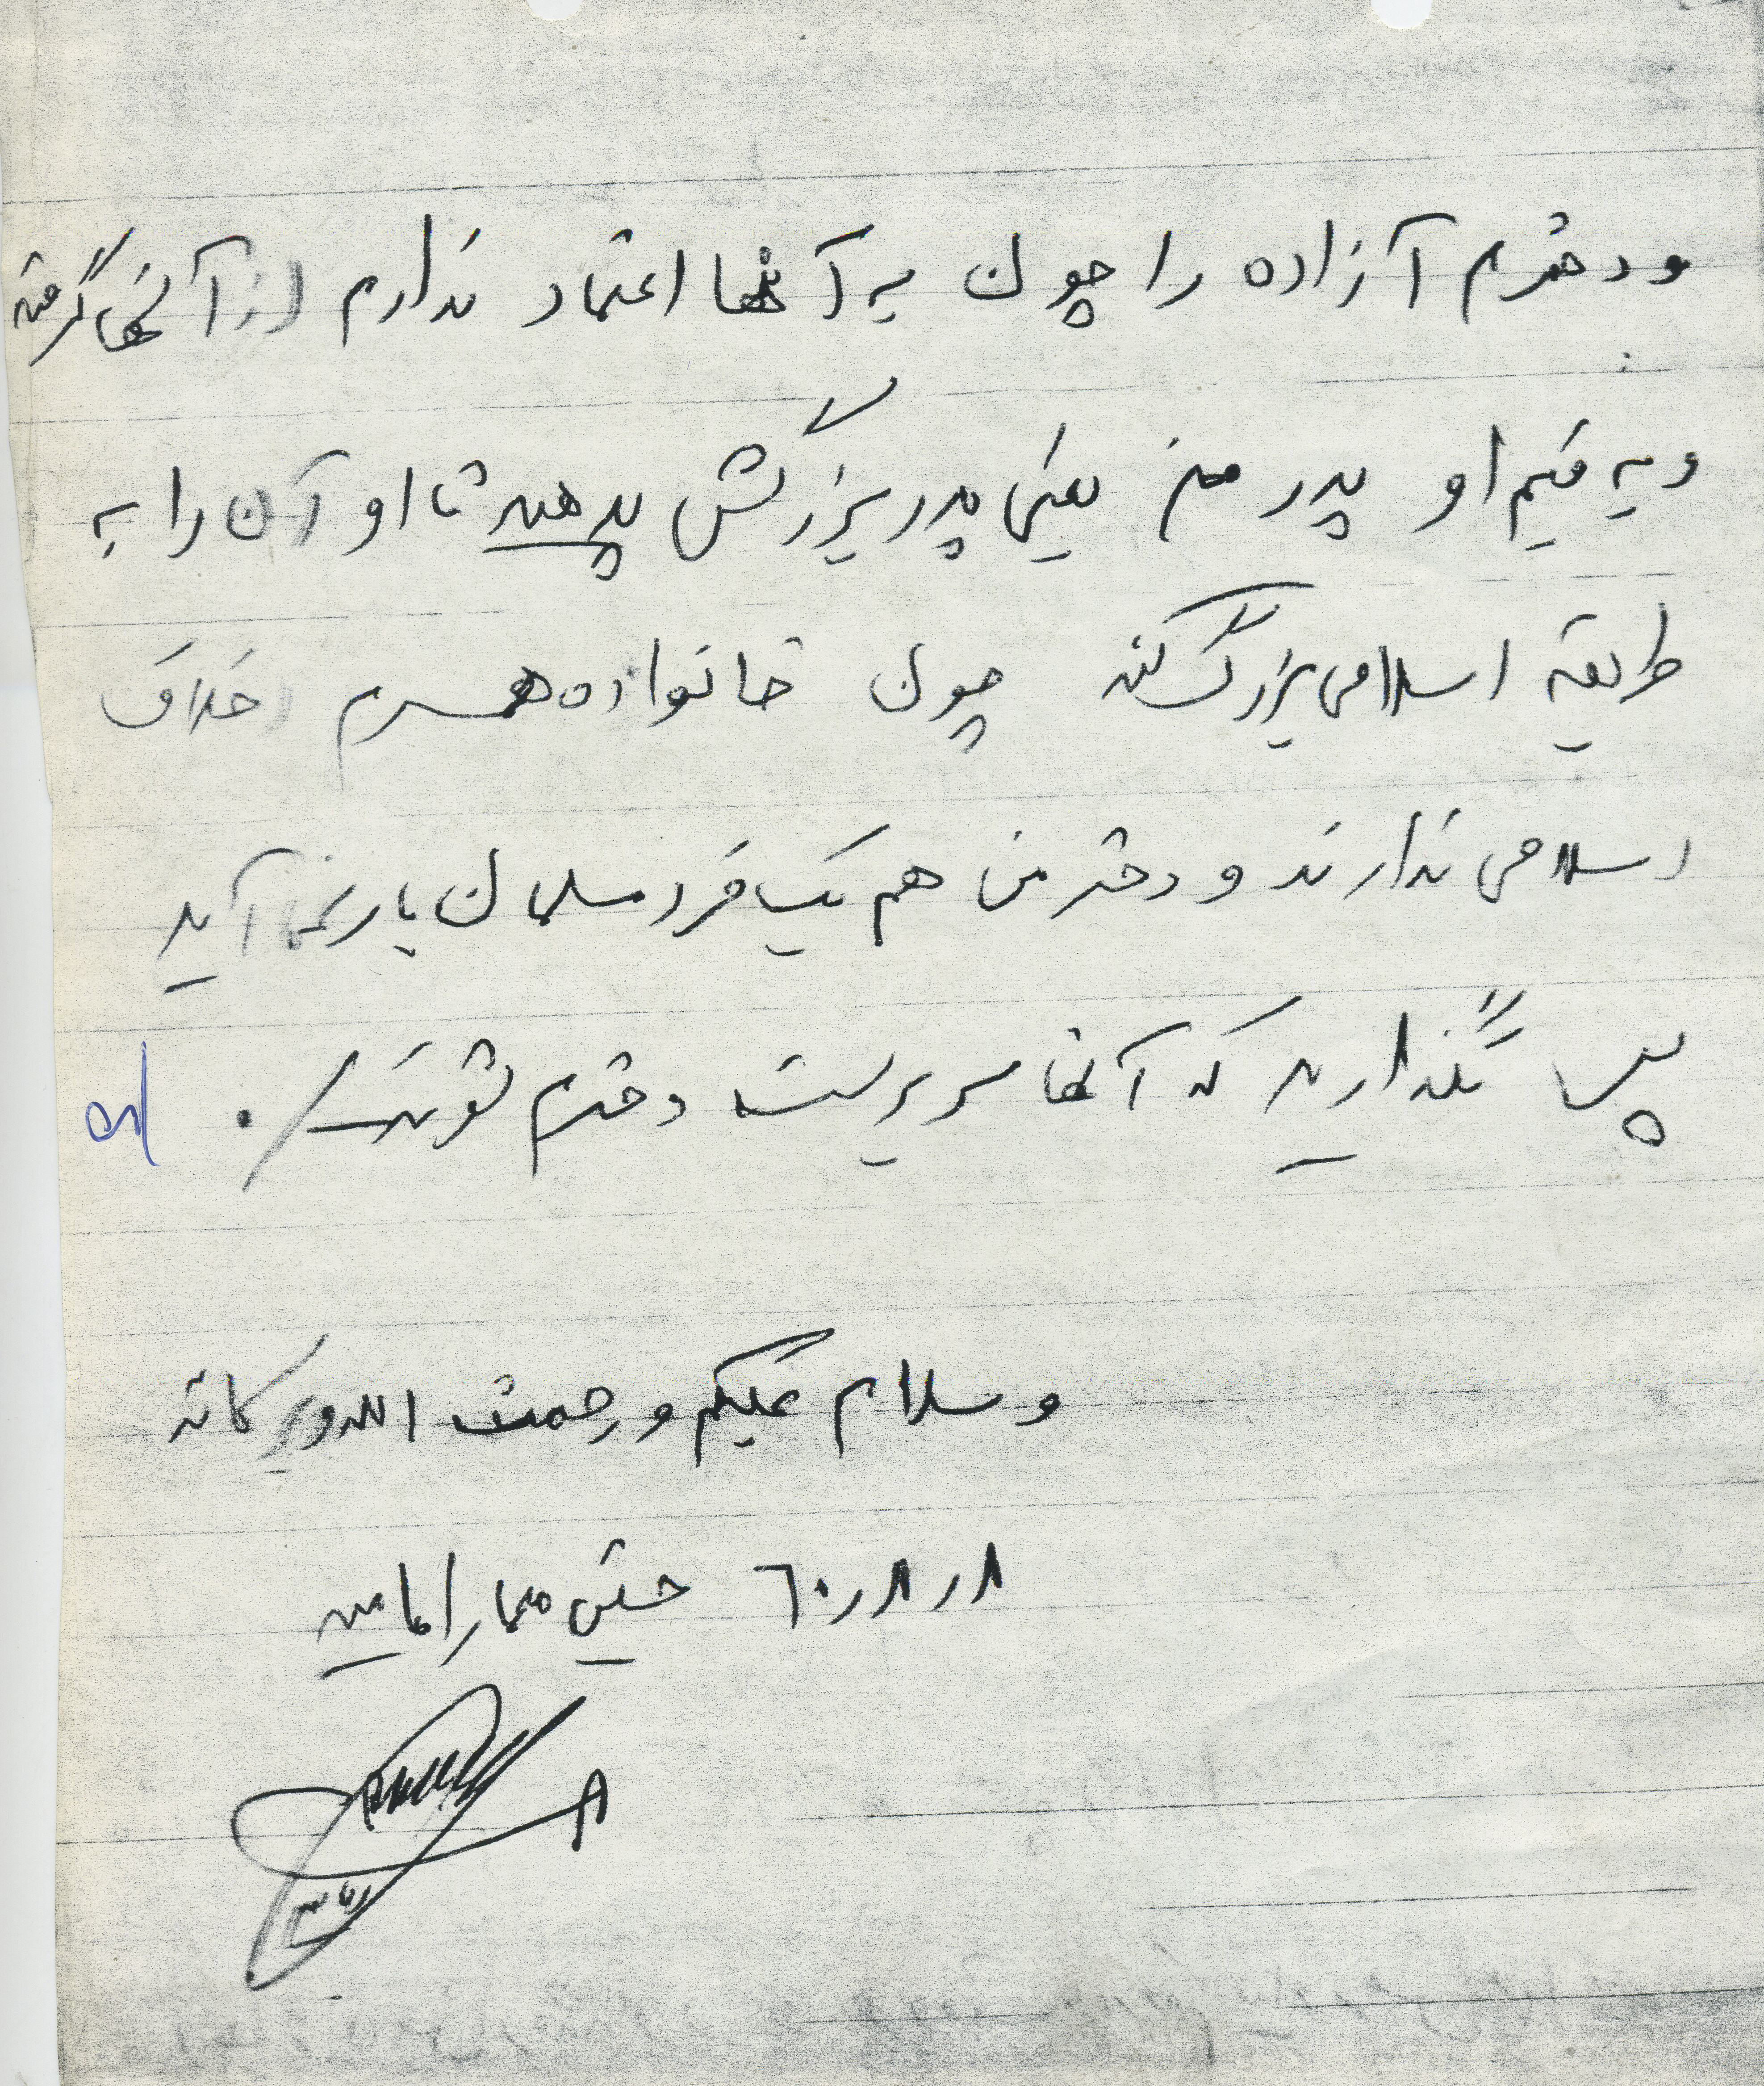 و دخترم آزاده را چون به آنها اعتماد ندارم از آنها گرفته
و به قیم او پدر من یعنی پدر بزرگش بدهید تا او آن را به
طریقه اسلامی بزرگ کند چون خانواده همسرم اخلاق
اسلامی ندارند و دختر من هم یک فرد مسلمان بار نمیآید
پس نگذارید که آنها سرپرست دخترم شوند /.
وسلام علیکم و رحمت الله وبرکاته
۸ر۸ر۶۰ حسین معمار امامیه